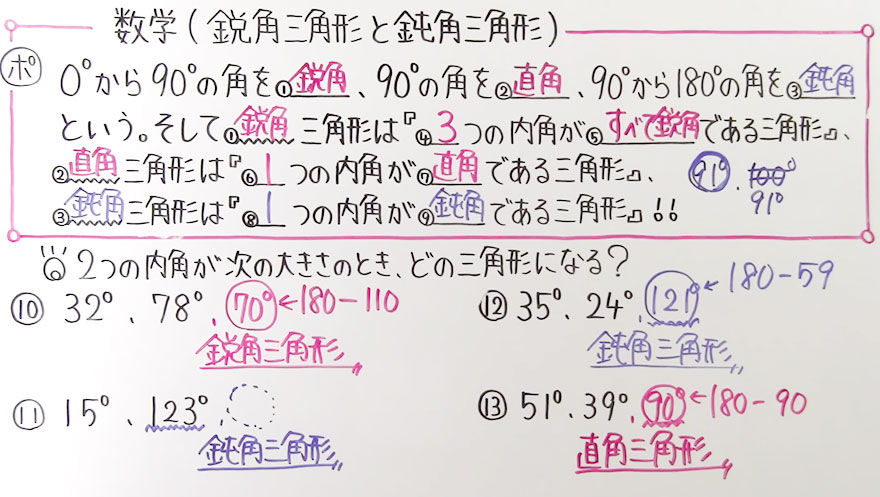 数学(鋭角三角形と鈍角三角形)
ポ
0°から90°の角を①鋭角、90°の角を②直角、90°から180°の角を③鈍角
という。そして①鋭角三角形は『④3つの内角が⑤すべて鋭角である三角形』、
②直角三角形は『⑥1つの内角が⑦直角である三角形』、 91°、100°
91°
③鈍角三角形は『⑧1つの内角が⑨鈍角である三角形』!!
2つの内角が次の大きさのとき、どの三角形になる?
⑩ 32°、78°、70°←180-110
鋭角三角形
⑪ 15°、123°、
鈍角三角形
⑫ 35°、24°、121°←180-59
鈍角三角形
⑬ 51°、39°、90°←180-90
直角三角形